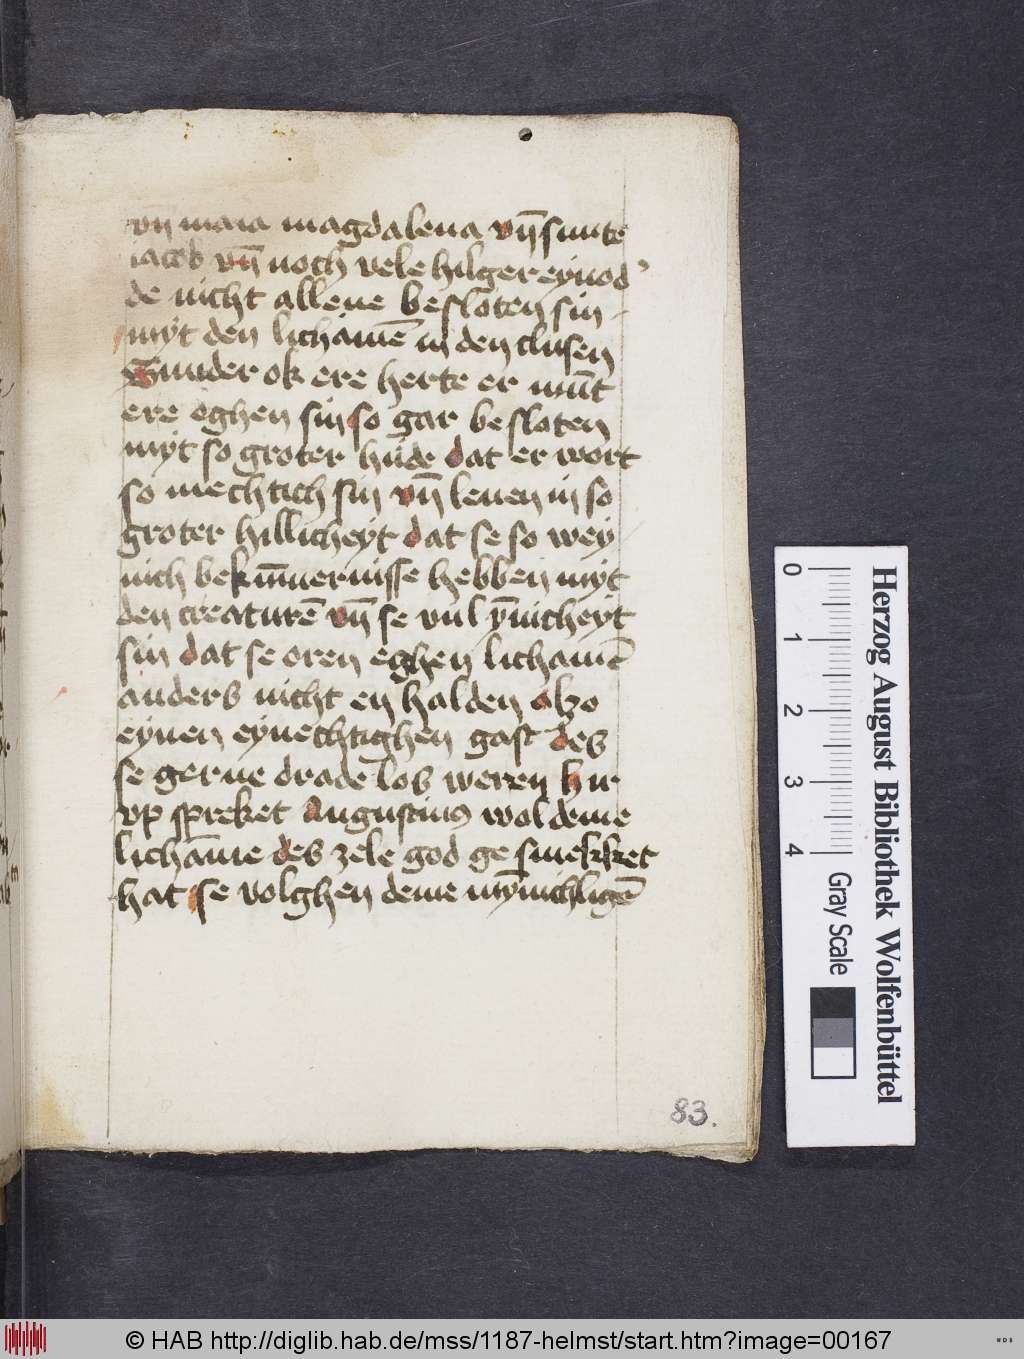 vn̄ maia magdalena vn̄ sunte
iacob vn̄ noch vele hilger eynod'
de nicht allene besloten sin
myt den lichamē in den clusen
Sunder ok ere herte er mūt
ere oghen sin so gar besloten
myt so groter hude dat er wort
so mechtich sin vn̄ leuen in so
groter hillicheyt dat se so wey
nich bekūmernisse hebben myt
den creaturē vn̄ se vul ȳnicheyt
sin dat se oren eghen lichamē
anders nicht en halden alzo
eynen eynechtighen gast des
se gerne drade los weren hir
vp spreket Augustinus wol deme
lichāme des zele god ge smekket
hat se volghen deme
83.
Herzog August Bibliothek Wolfenbüttel
0 1 2 3 4
Gray Scale
© HAB http://diglib.hab.de/mss/1187-helmst/start.htm?image=00167
WDB